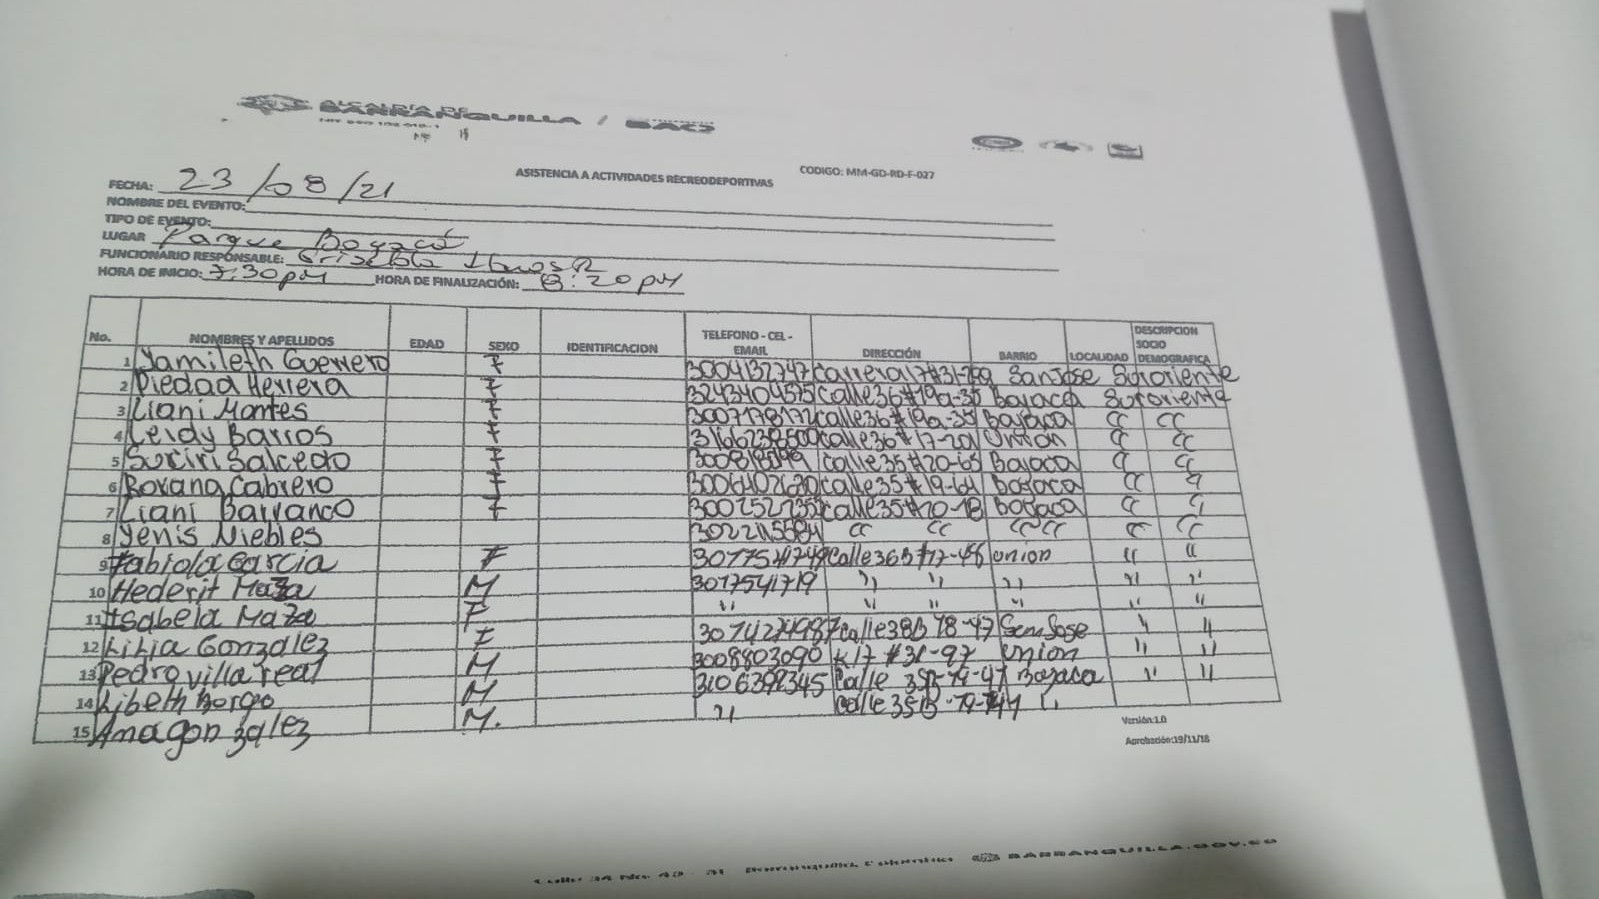 ALCALDÍA DE
BARRANQUILLA /
ASISTENCIA A ACTIVIDADES RECREODEPORTIVAS CODIGO: MM-GD-RD-F-027
FECHA: 23/08/21
NOMBRE DEL EVENTO:
TIPO DE EVENTO:
LUGAR Parque Boyacá
FUNCIONARIO RESPONSABLE:
HORA DE INICIO: 7:30 pM HORA DE FINALIZACIÓN: 8:20 pM
No. NOMBRES Y APELLIDOS EDAD SEXO IDENTIFICACION TELEFONO - CEL - EMAIL DIRECCIÓN BARRIO LOCALIDAD DESCRIPCION SOCIO DEMOGRAFICA
1 Yamileth Guerrero F 3004132747 SanJose Suroriente
2 Piedad Herrera F 3243404575 calle36#19a-35 Boyaca Suroriente
3 Liani Montes F calle36#19a-35 Boyaca " "
4 Leidy Barros F calle36#17-201 Union " "
5 Salcedo F calle35#20-65 Boyaca " "
6 Roxana Cabrero F 3006402620 calle35#19-64 Boyaca " "
7 Liani Barranco F calle35#20-18 Boyaca " "
8 Yenis Niebles " " " " " "
9 Fabiola Garcia F union " "
10 Hederit Maza M 3017541719 " " " " "
11 Isabela Maza F " " " " " "
12 Lilia Gonzalez F 3074274987 calle38B 78-47 San Jose " "
13 Pedro villa real M 3008803090 K17 #31-97 union " "
14 Libeth Borgo M Boyaca " "
15 Ana gonzalez M. " "
Versión:1.0
Aprobación:19/11/18
Calle 34 No. 43 - 31 Barranquilla, Colombia BARRANQUILLA.GOV.CO